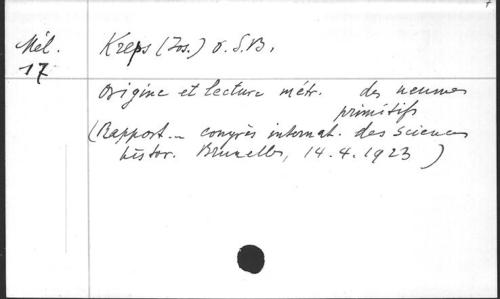 Mél.
17
Kreps (Jos.) O.S.B.
Origine et lecture métr. des neumes
primitifs
(Rapport... congrès internat. des sciences
histor. Bruxelles, 14.4.1923)